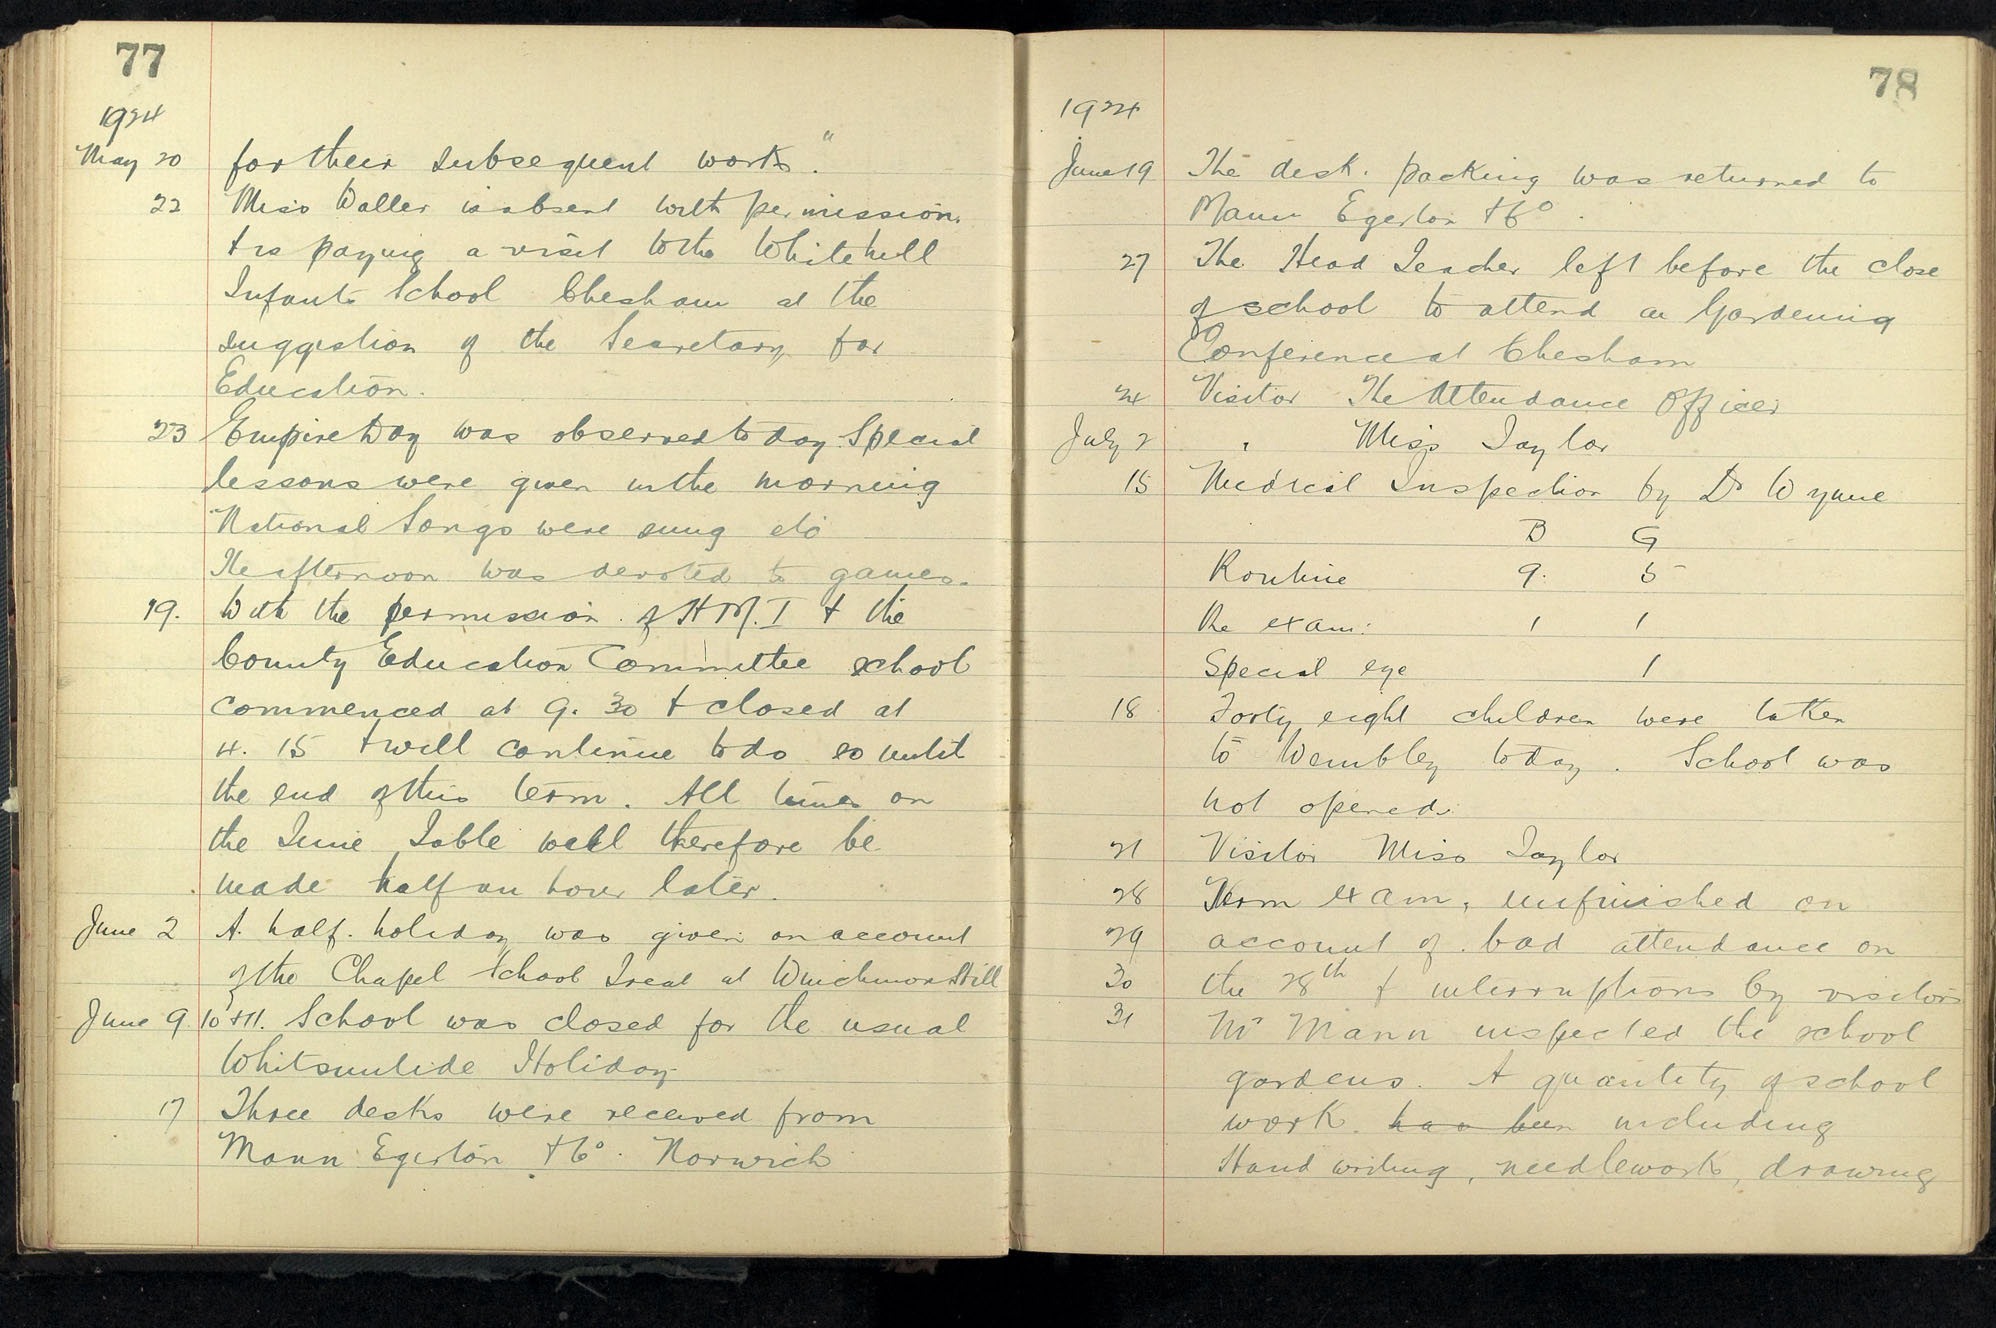 77
1924
May 20 for their subsequent works."
22 Miss Waller is absent with permission.
& is paying a visit to the Whitehill
Infants School Chesham at the
suggestion of the Secretary for
Education.
23 Empire Day was observed today Special
lessons were given in the morning
National Songs were sung etc
The afternoon was devoted to games.
19. With the permission of H M. I & the
County Education Committee school
commenced at 9. 30 & closed at
4. 15 & will continue to do so until
the end of this term. All times on
the Time Table will therefore be
made half an hour later.
June 2 A. half. holiday was given on account
of the Chapel School Treat at Winchmore Hill
June 9 10 & 11. School was closed for the usual
Whitsuntide Holiday
17 Three desks were received from
Mann Egerton & Co. Norwich
78
1924
June 19 The desk. packing was returned to
Mann Egerton & Co.
27 The Head Teacher left before the close
of school to attend a Gardening
Conference at Chesham
24 Visitor The Attendance Officer
July 2 " Miss Taylor
15 Medical Inspection by Dr Wynne
B G
Routine 9. 5
Re exam: 1 1
Special eye 1
18 Forty eight children were taken
to Wembley today. School was
not opened.
21 Visitor Miss Taylor
28 Term exam, unfinished on
29 account of bad attendance on
30 the 28th & interruptions by visitors
31 Mr Mann inspected the school
gardens. A quantity of school
work has been including
Hand writing, needlework, drawing